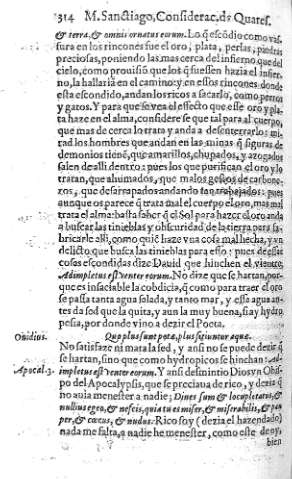 314 M. Sanctiago, Considerac. ds Quares.
& terra, & omnis ornatus eorum. Lo q̃ escõdio como va-
sura en los rincones fue el oro, plata, perlas, piedras
preciosas, poniendo las mas cerca del infierno que del
cielo, como prouisiõ que los q̃ fuessen hazia el infier-
no, la hallariã en el camino: y en essos rincones donde
esta escondido, andan los ricos a sacarlo, como perros
y gatos. Y para que se vea el effecto que esse oro y pla
ta haze en el alma, considere se que tal para al cuerpo,
que mas de cerca lo trata y anda a desenterrarlos: mi
rad los hombres que andan en las minas q̃ figuras de
demonios tienē, que amarillos, chupados, y azogados
salen de alli dentro: pues los que purifican el oro y lo
tratan, que ahumados, que malos gestos de carbone-
ros, que desarrapados andando tan trabajados: pues
aunque os parece q̃ trata mal el cuerpo el oro, mas mal
trata el alma: basta saber q̃ el Sol para hazer el oro anda
a buscar las tinieblas y obscuridad de la tierra para fa-
bricarle alli, como quiē haze vna cosa mal hecha, y vn
delicto, que busca las tinieblas para esso: pues dessas
cosas escondidas dize Dauid que hinchen el vientre,
Adimpletus est venter eorum. No dize que se hartan, por-
que es insaciable la cobdicia, q̃ como para traer el oro
se passa tanta agua salada, y tanto mar, y essa agua an-
tes da sed que la quita, y aun la muy buena, si ay hydro
pesia, por donde vino a dezir el Poeta.
Ouidius. Quo plus sunt potæ, plus sitiuntur aquæ.
No satisfaze ni mata la sed, y ansi no se puede dezir q̃
se hartan, sino que como hydropicos se hinchan: Ad-
Apocal. 3. impletus est venter eorum. Y ansi desmintio Dios vn Obis-
po del Apocalypsis, que se preciaua de rico, y dezia q̃
no auia menester a nadie: Dives sum & locupletatus, &
nullius egeo, & nescis, quia tu es miser, & miserabilis, & pau
per, & cæcus, & nudus. Rico soy (dezia el hazendado)
nada me falta, a nadie he menester, como este de oy,
bien